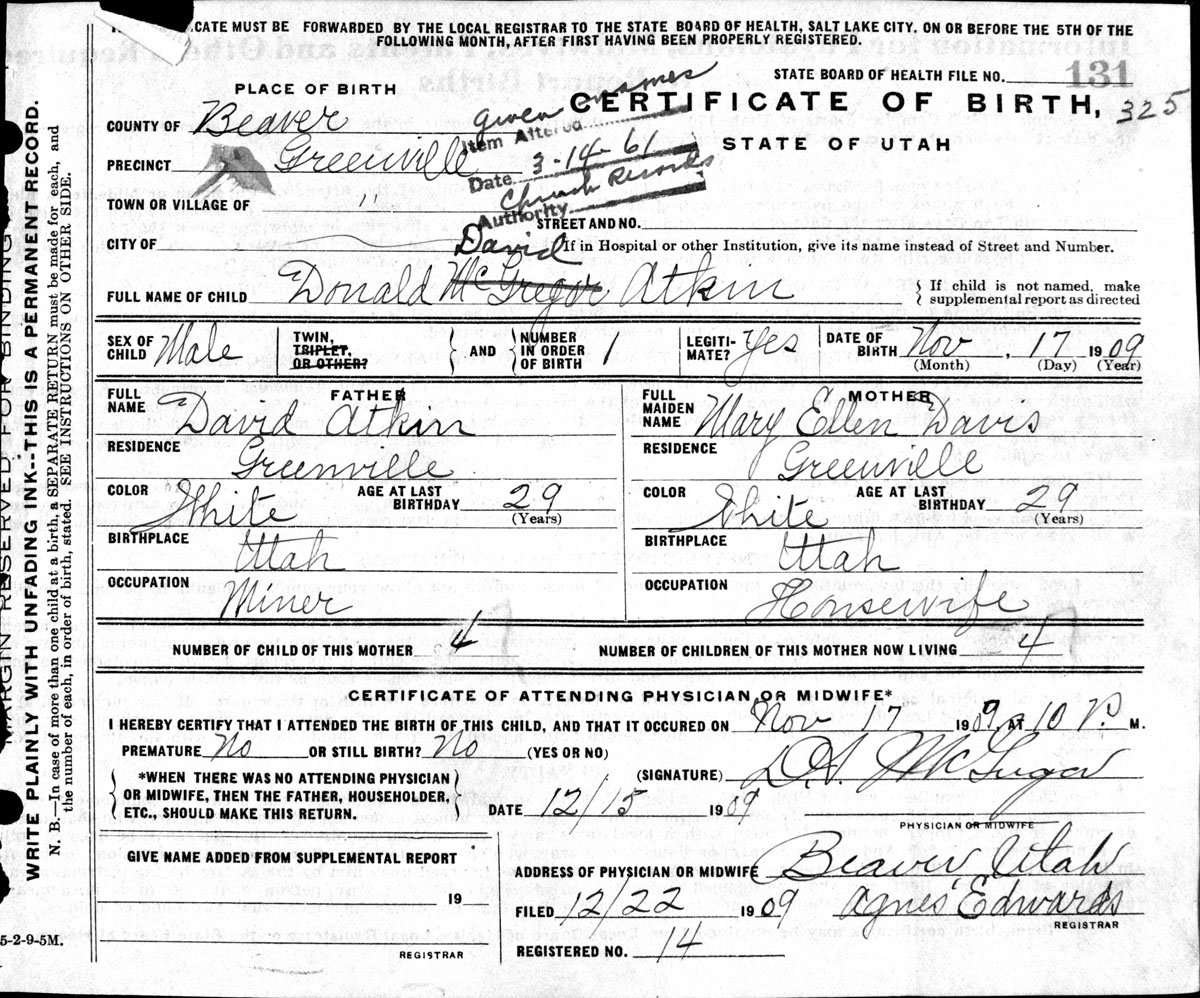 CATE MUST BE FORWARDED BY THE LOCAL REGISTRAR TO THE STATE BOARD OF HEALTH, SALT LAKE CITY, ON OR BEFORE THE 5TH OF THE
FOLLOWING MONTH, AFTER FIRST HAVING BEEN PROPERLY REGISTERED.
STATE BOARD OF HEALTH FILE NO. 131
PLACE OF BIRTH
CERTIFICATE OF BIRTH, 325
STATE OF UTAH
COUNTY OF Beaver
PRECINCT Greenville
TOWN OR VILLAGE OF "
CITY OF
Given names
Item Altered
Date 3-14-61
Church Records
Authority
STREET AND NO.
If in Hospital or other Institution, give its name instead of Street and Number.
David
FULL NAME OF CHILD Donald McGregor Atkin
If child is not named, make
supplemental report as directed
SEX OF CHILD Male
TWIN, TRIPLET, OR OTHER?
AND
NUMBER IN ORDER OF BIRTH 1
LEGITI-MATE? Yes
DATE OF BIRTH Nov. 17 1909
(Month) (Day) (Year)
FATHER
FULL NAME David Atkin
RESIDENCE Greenville
COLOR White AGE AT LAST BIRTHDAY 29
(Years)
BIRTHPLACE Utah
OCCUPATION Miner
MOTHER
FULL MAIDEN NAME Mary Ellen Davis
RESIDENCE Greenville
COLOR White AGE AT LAST BIRTHDAY 29
(Years)
BIRTHPLACE Utah
OCCUPATION Housewife
NUMBER OF CHILD OF THIS MOTHER 4
NUMBER OF CHILDREN OF THIS MOTHER NOW LIVING 4
CERTIFICATE OF ATTENDING PHYSICIAN OR MIDWIFE*
I HEREBY CERTIFY THAT I ATTENDED THE BIRTH OF THIS CHILD, AND THAT IT OCCURED ON Nov 17 1909, AT 10 P. M.
PREMATURE No OR STILL BIRTH? No (YES OR NO)
*WHEN THERE WAS NO ATTENDING PHYSICIAN
OR MIDWIFE, THEN THE FATHER, HOUSEHOLDER,
ETC., SHOULD MAKE THIS RETURN.
(SIGNATURE)
DATE 12/15 1909
PHYSICIAN OR MIDWIFE
GIVE NAME ADDED FROM SUPPLEMENTAL REPORT
19
REGISTRAR
ADDRESS OF PHYSICIAN OR MIDWIFE Beaver Utah
FILED 12/22 1909 Agnes Edwards
REGISTRAR
REGISTERED NO. 14
5-2-9-5M.
MARGIN RESERVED FOR BINDING
WRITE PLAINLY WITH UNFADING INK--THIS IS A PERMANENT RECORD.
N. B.—In case of more than one child at a birth, a SEPARATE RETURN must be made for each, and
the number of each, in order of birth, stated. SEE INSTRUCTIONS ON OTHER SIDE.